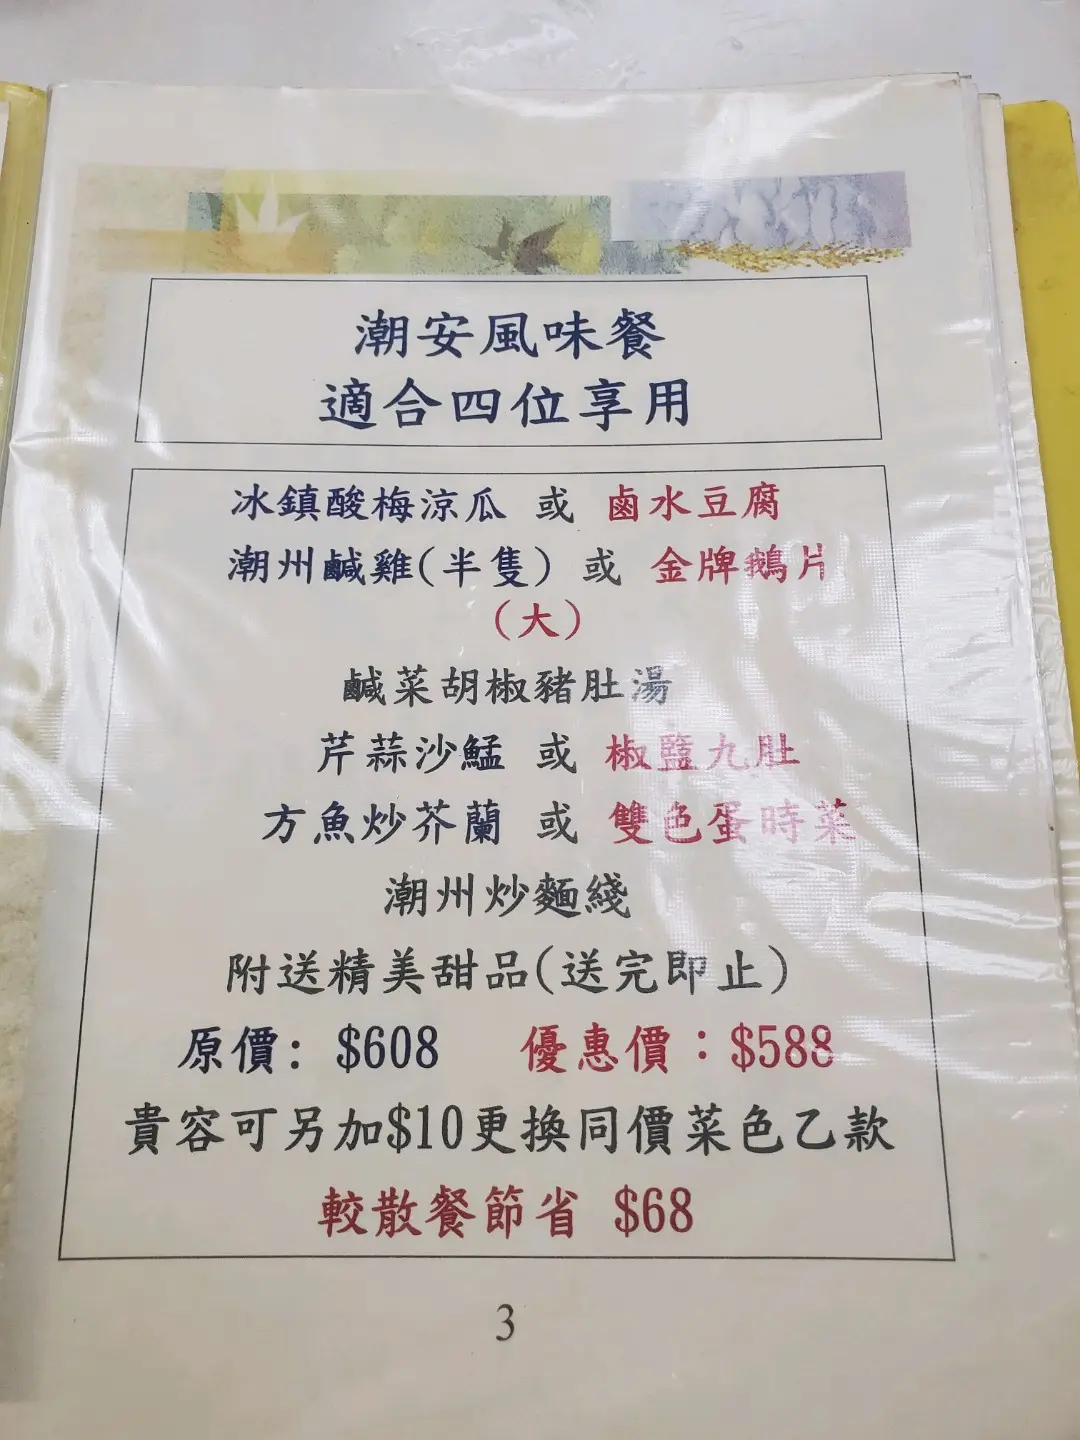 潮安風味餐
適合四位享用
冰鎮酸梅涼瓜 或 鹵水豆腐
潮州鹹雞(半隻) 或 金牌鵝片
(大)
鹹菜胡椒豬肚湯
芹蒜沙鯭 或 椒鹽九肚
方魚炒芥蘭 或 雙色蛋時菜
潮州炒麵綫
附送精美甜品(送完即止)
原價: $608 優惠價：$588
貴容可另加$10更換同價菜色乙款
較散餐節省 $68
3